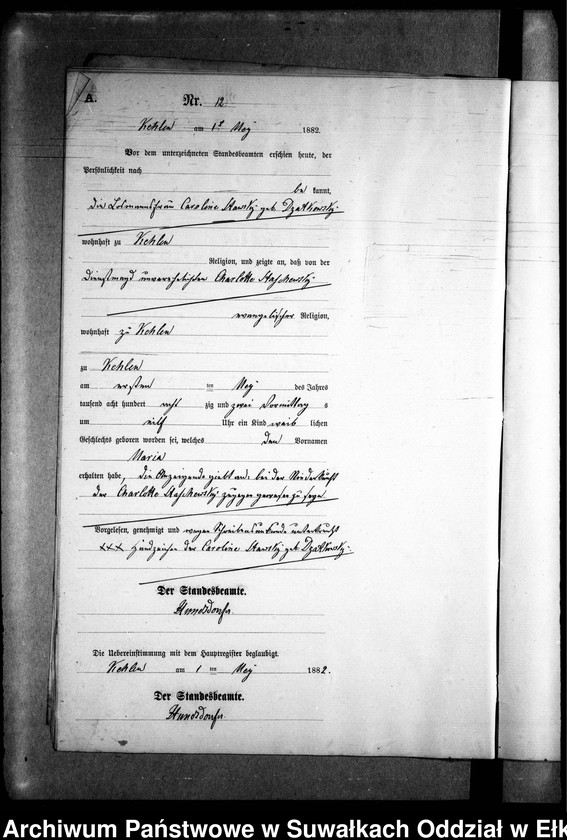 A.
Nr. 12
Kehlen am 1t Mey 1882.
Vor dem unterzeichneten Standesbeamten erschien heute, der
Persönlichkeit nach
be kannt,
die Losmannsfrau Caroline Stawsky geb. Dzatkowsky
wohnhaft zu Kehlen
Religion, und zeigte an, daß von der
Dienstmagd unverehelichten Charlotte Staschewsky
evangelischer Religion,
wohnhaft zu Kehlen
zu Kehlen
am ersten ten Mey des Jahres
tausend acht hundert acht zig und zwei Vormittag s
um eilf Uhr ein Kind weib lichen
Geschlechts geboren worden sei, welches den Vornamen
Maria
erhalten habe, die Anzeigende giebt an, bei der Niederkunft
der Charlotte Staschewsky zugegen gewesen zu seyn
Vorgelesen, genehmigt und wegen Schreibensunkunde unterkreuzt
+++ Handzeichen der Caroline Stawsky geb. Dzatkowsky.
Der Standesbeamte.
Die Uebereinstimmung mit dem Hauptregister beglaubigt.
Kehlen am 1 ten Mey 1882.
Der Standesbeamte.
Archiwum Państwowe w Suwałkach Oddział w Ełk